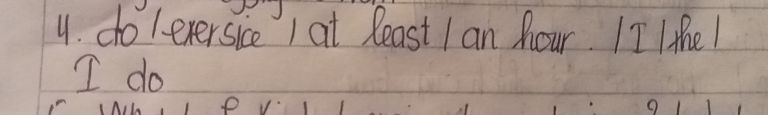 4. do / exersice / at least / an hour. / I / the /
I do